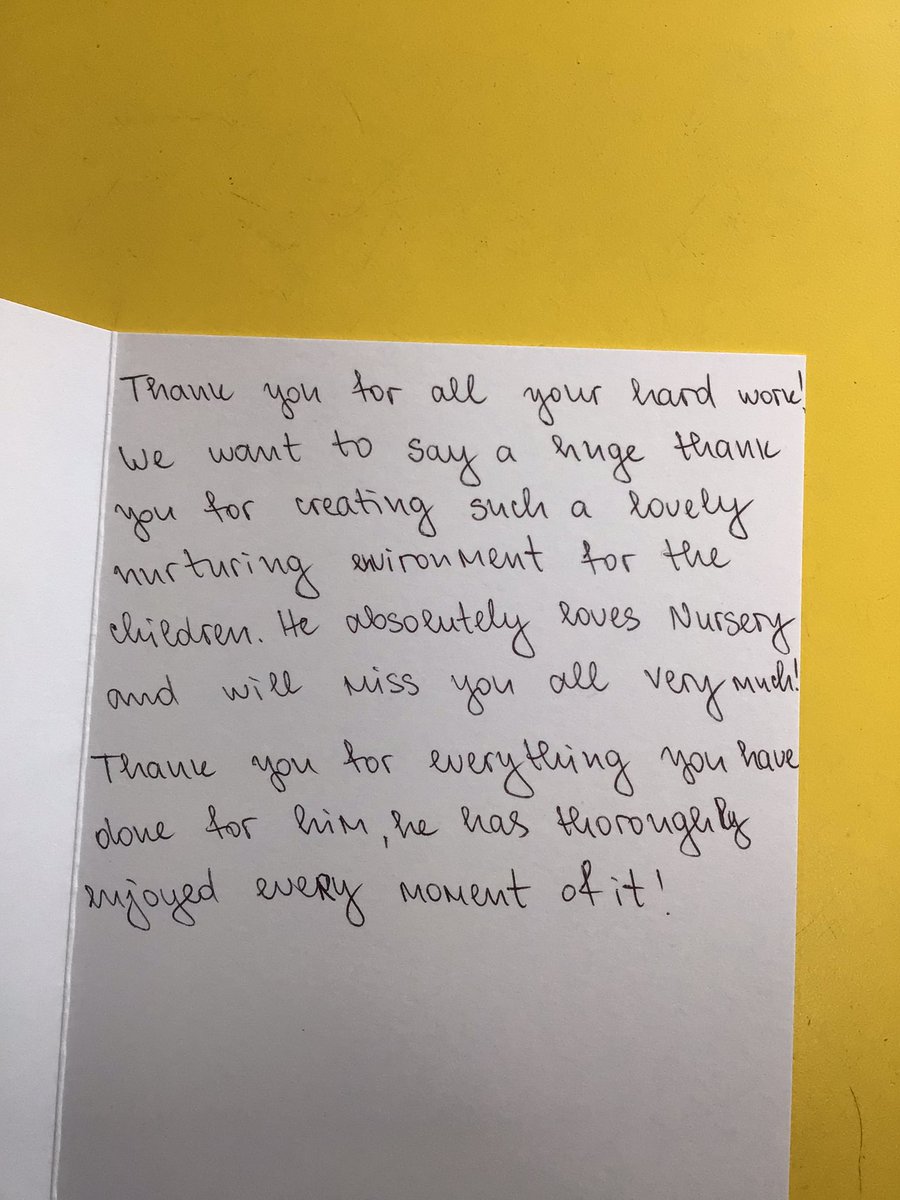 Thank you for all your hard work!
We want to say a huge thank
you for creating such a lovely
nurturing environment for the
children. He absolutely loves Nursery
and will miss you all very much!
Thank you for everything you have
done for him, he has thoroughly
enjoyed every moment of it!